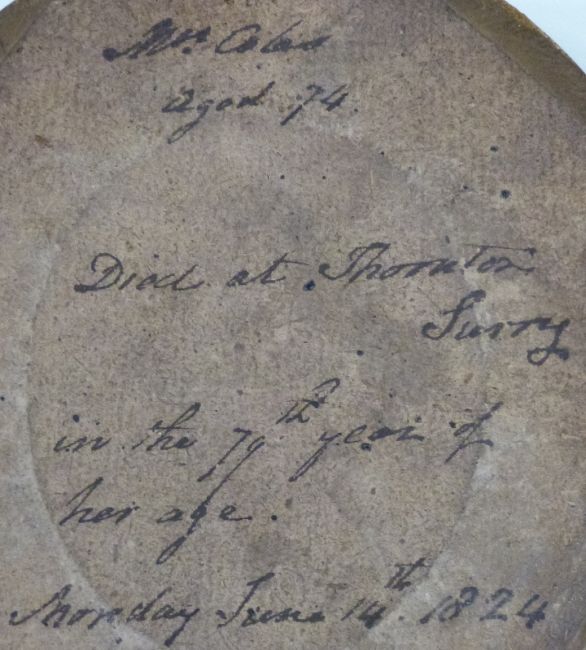 Mrs Coles
aged 74.
Died at Thornton
Surry
in the 79th year of
her age.
Monday June 14th. 1824